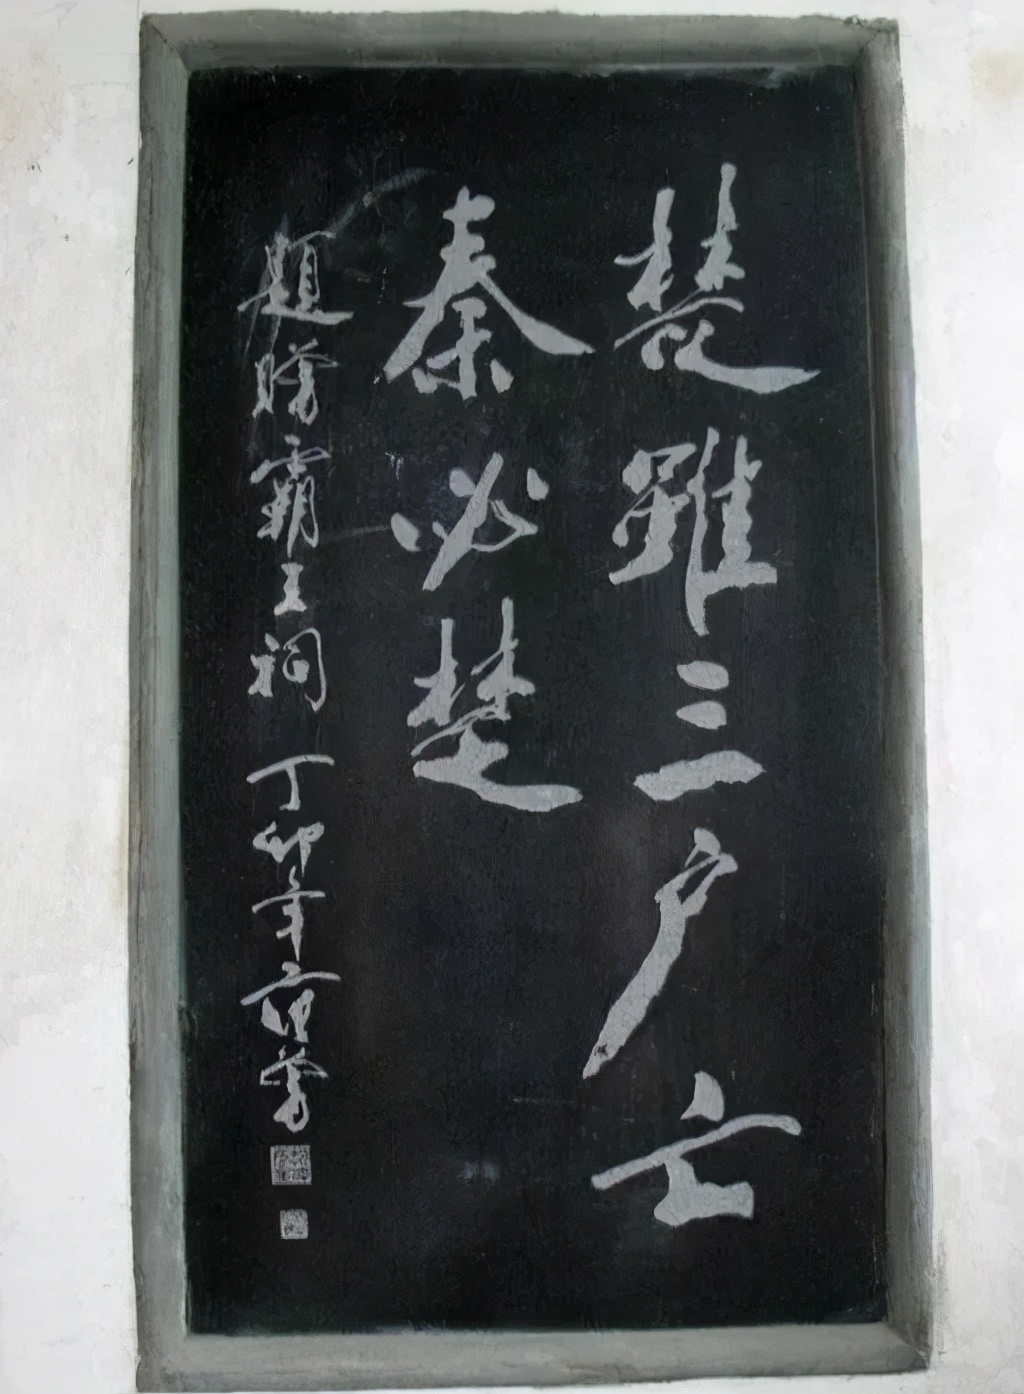 楚雖三户亡
秦必楚
題贈霸王祠 丁卯年范曾